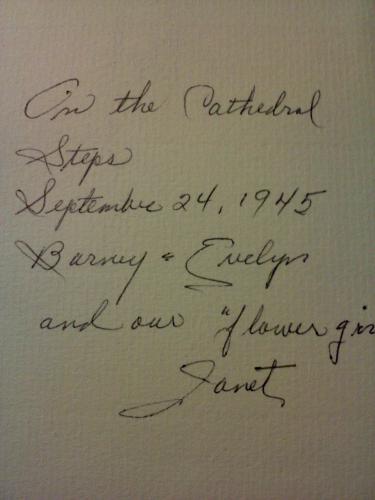 On the Cathedral
Steps
September 24, 1945
Barney & Evelyn
and our "flower gir
Janet